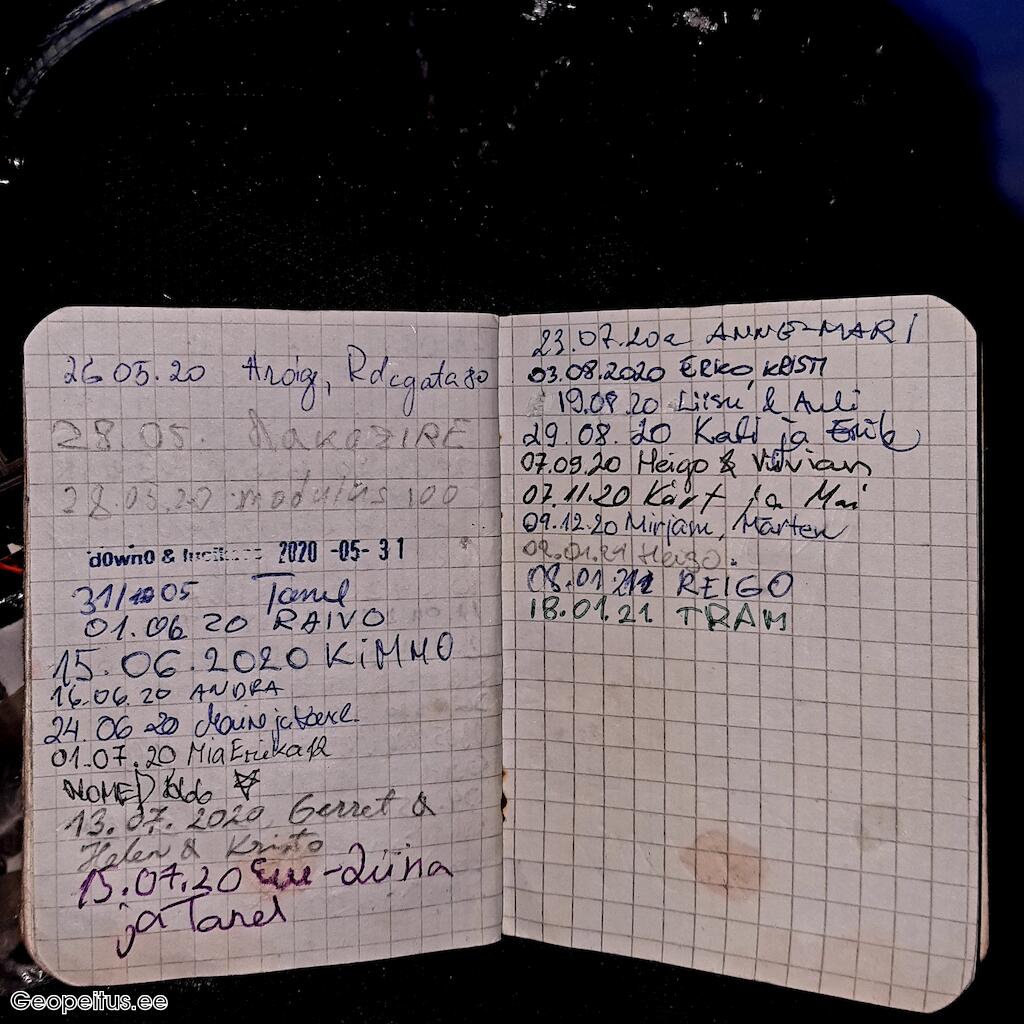 26.05.20 Aroig, Rdcgata80
28.05. NakaZIRE
28.05.20 modulus 100
d0wn0 & 2020 -05- 31
31/05 Tanel
01.06 20 RAIVO
15.06.2020 KiMMO
16.06.20 ANDRA
24.06 20
01.07.20 MiaErika12
NOMED 666
13.07.2020 Gerret &
Helen & Kristo
15.07.20 Eve-Liina
ja Tanel
23.07.20a ANNE-MARI
03.08.2020 ERKO, KRISTI
19.08.20 Liisu & Auli
29.08.20 Kati ja Erik
07.09.20 Heigo & Vivian
07.11.20 Kärt ja Mai
09.12.20 Mirjam, Marten
02.01.21 Heigo.
08.01.21 REIGO
18.01.21 TRAM
Geopeitus.ee